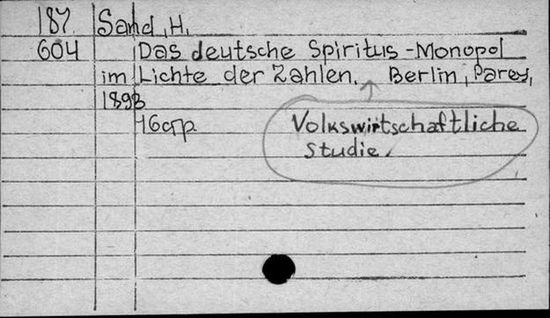 187. Sand, H.
604 Das deutsche Spiritus-Monopol
im Lichte der Zahlen. Berlin, Parey,
1893
Volkswirtschaftliche
Studie.